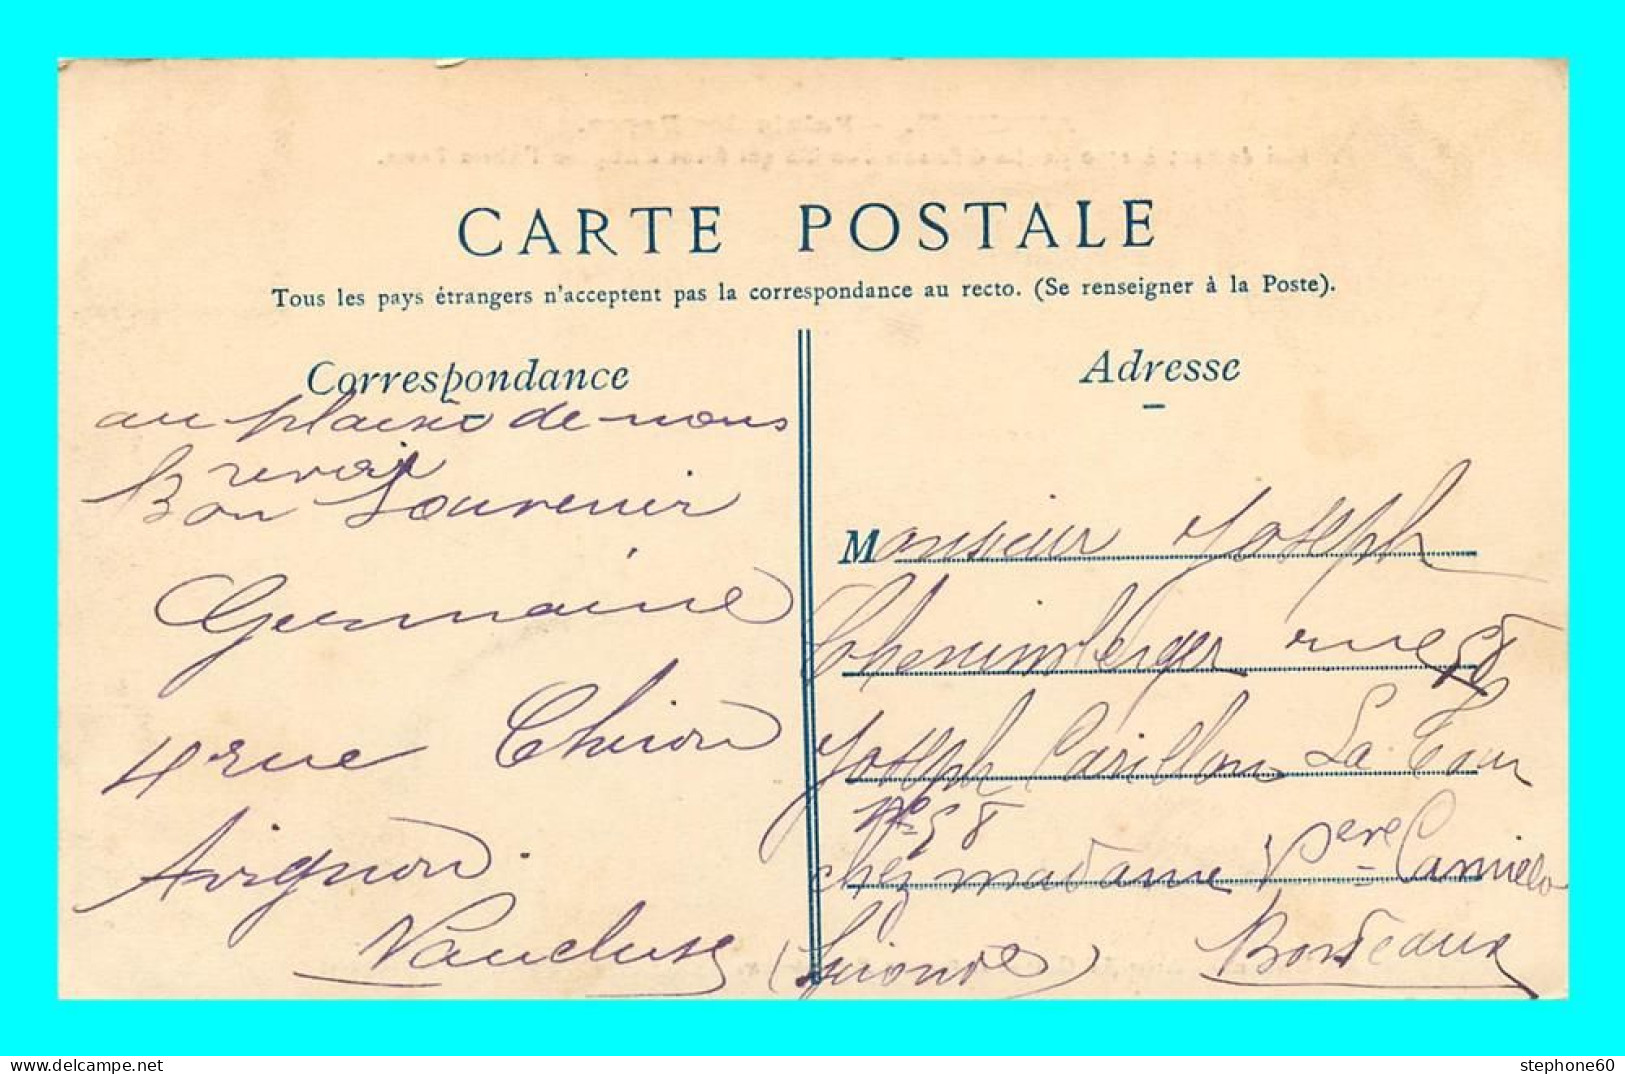 CARTE POSTALE
Tous les pays étrangers n'acceptent pas la correspondance au recto. (Se renseigner à la Poste).
Correspondance
au plaisir de nous
revoir
Bon Souvenir
Germaine
4 rue Chiron
Avignon.
Vaucluse
Adresse
Monsieur Joseph
rue 58
Joseph Carillon La Tour
N° 58
chez madame Camielo
(Gironde) Bordeaux
stephone60